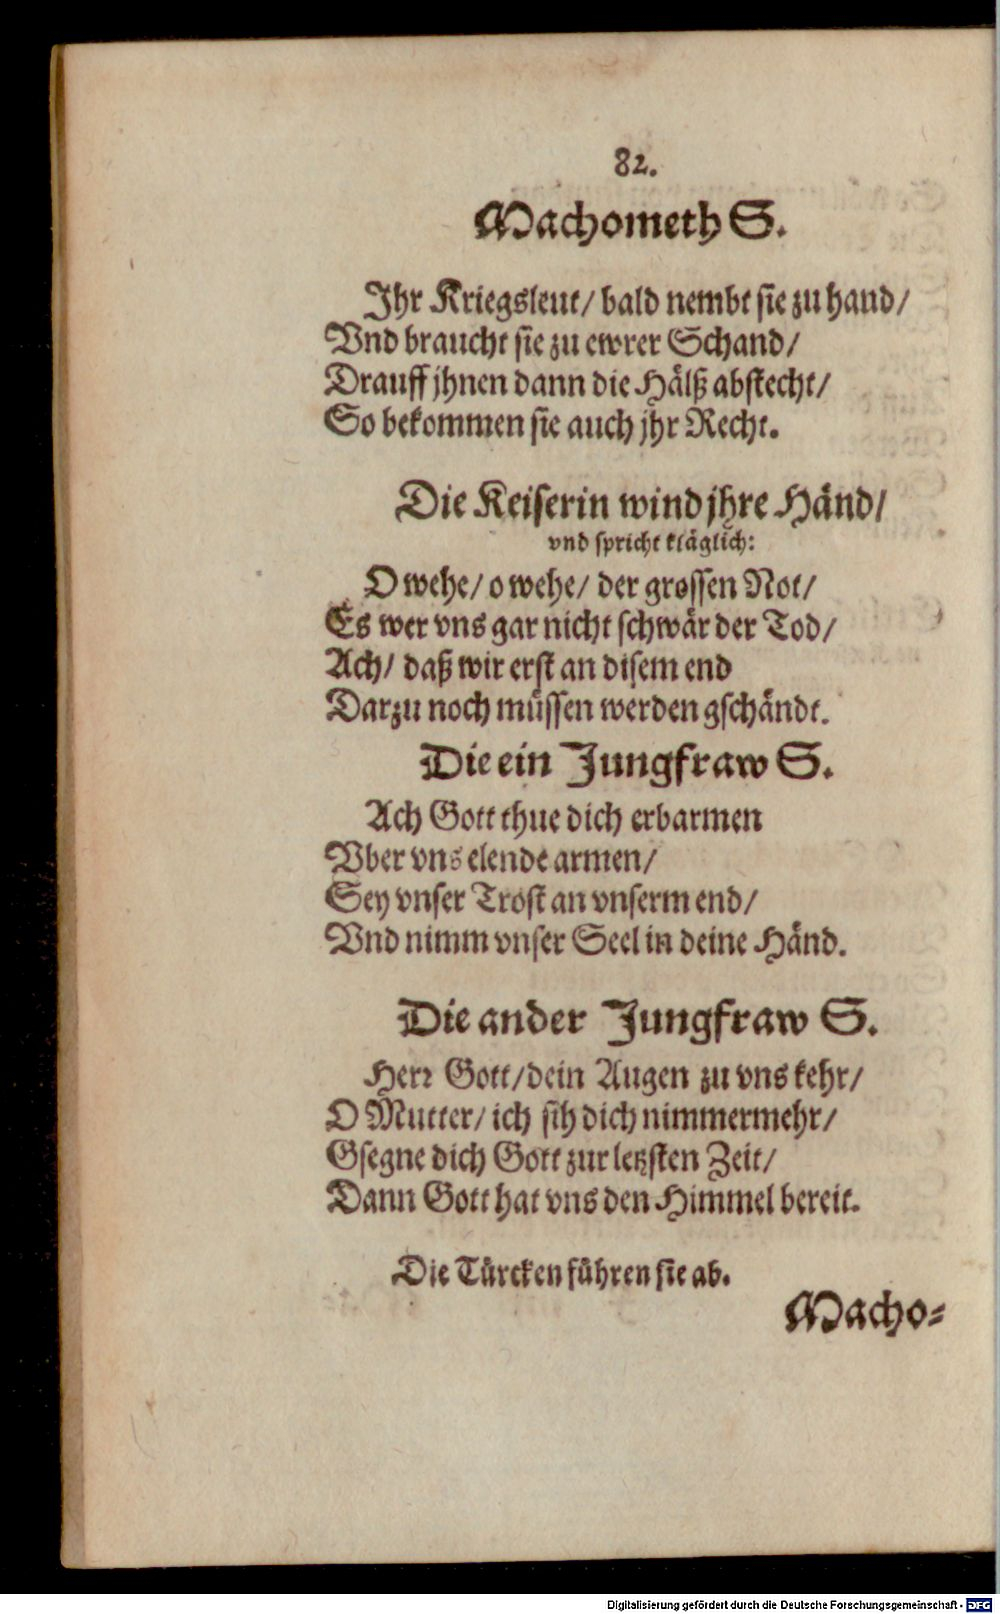 82.
Machometh S.
Ihr Kriegsleut/ bald nembt sie zu hand/
Vnd braucht sie zu ewrer Schand/
Drauff jhnen dann die Hälß abstecht/
So bekommen sie auch jhr Recht.
Die Keiserin wind jhre Händ/
vnd spricht kläglich:
O wehe/ o wehe/ der grossen Not/
Es wer vns gar nicht schwär der Tod/
Ach/ daß wir erst an disem end
Darzu noch müssen werden gschändt.
Die ein Jungfraw S.
Ach Gott thue dich erbarmen
Vber vns elende armen/
Sey vnser Trost an vnserm end/
Vnd nimm vnser Seel in deine Händ.
Die ander Jungfraw S.
Herr Gott/ dein Augen zu vns kehr/
O Mutter/ ich sih dich nimmermehr/
Gsegne dich Gott zur letzsten Zeit/
Dann Gott hat vns den Himmel bereit.
Die Türcken führen sie ab.
Macho-
Digitalisierung gefördert durch die Deutsche Forschungsgemeinschaft - DFG